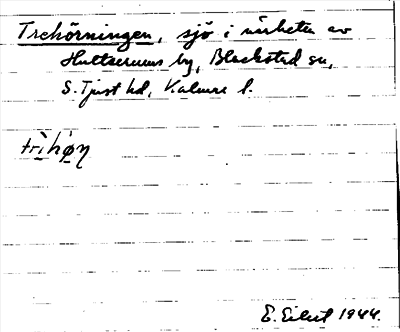 Trehörningen, sjö i närheten av
Hultserums by, Blackstad sn,
S. Tjust hd, Kalmar l.
trìhø̀ŋ
E. Eilert 1944.